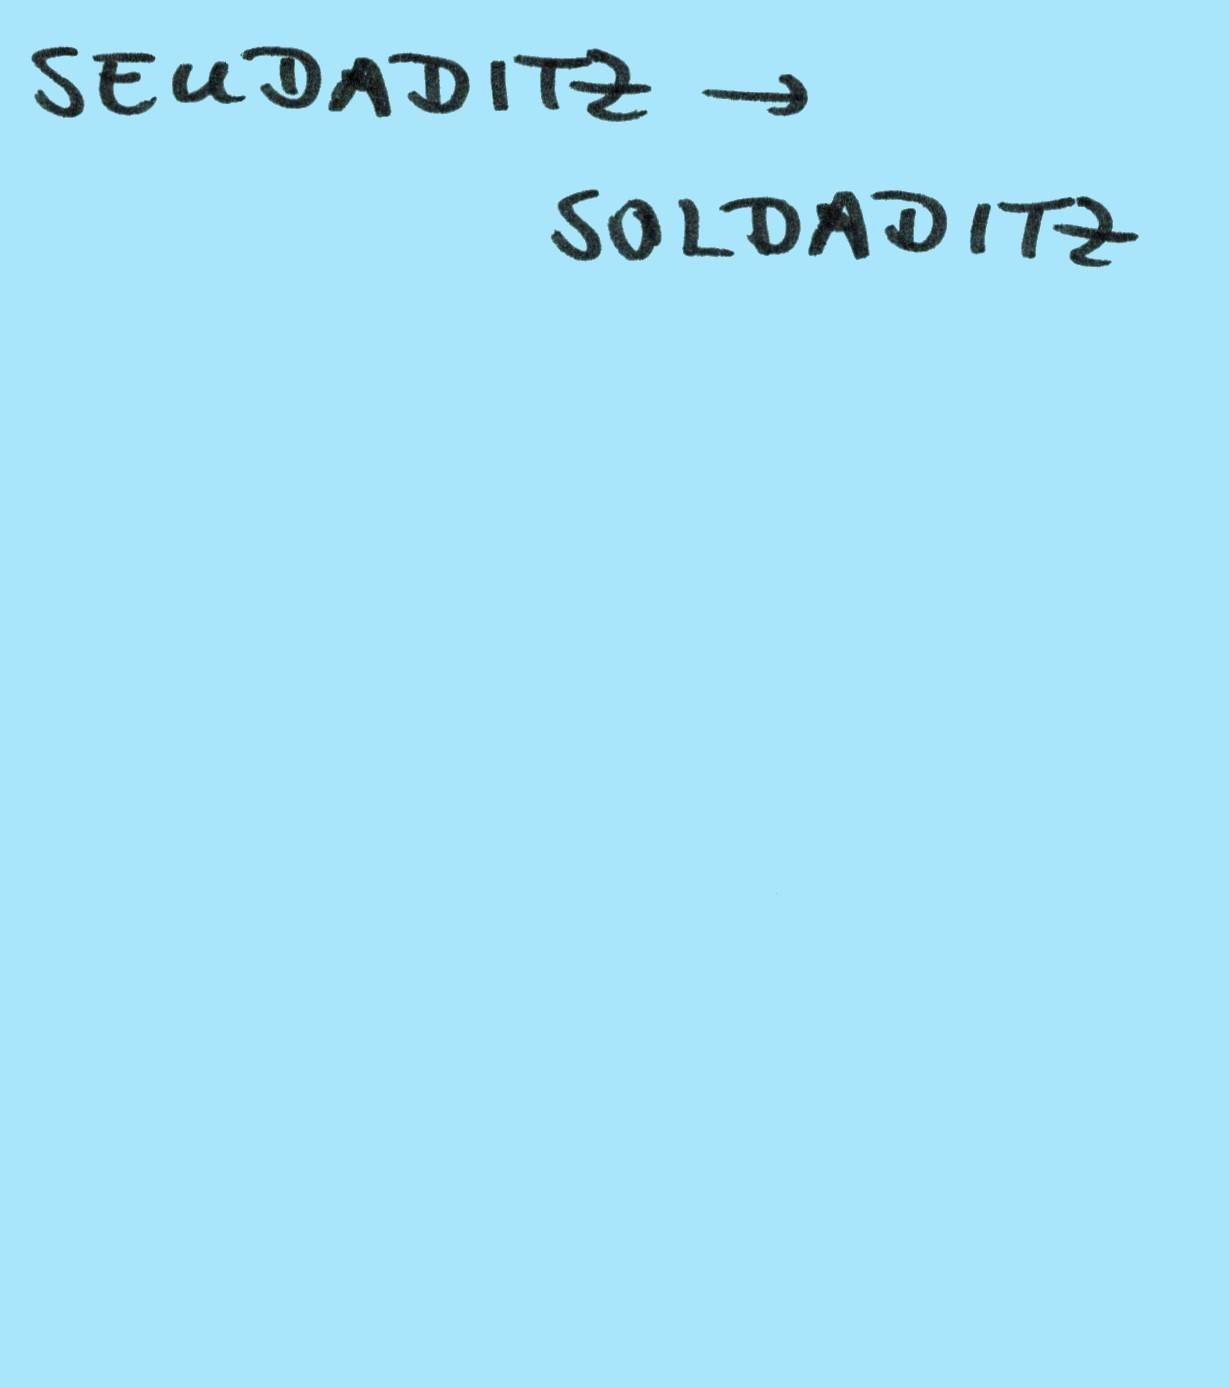 SEUDADITZ →
SOLDADITZ